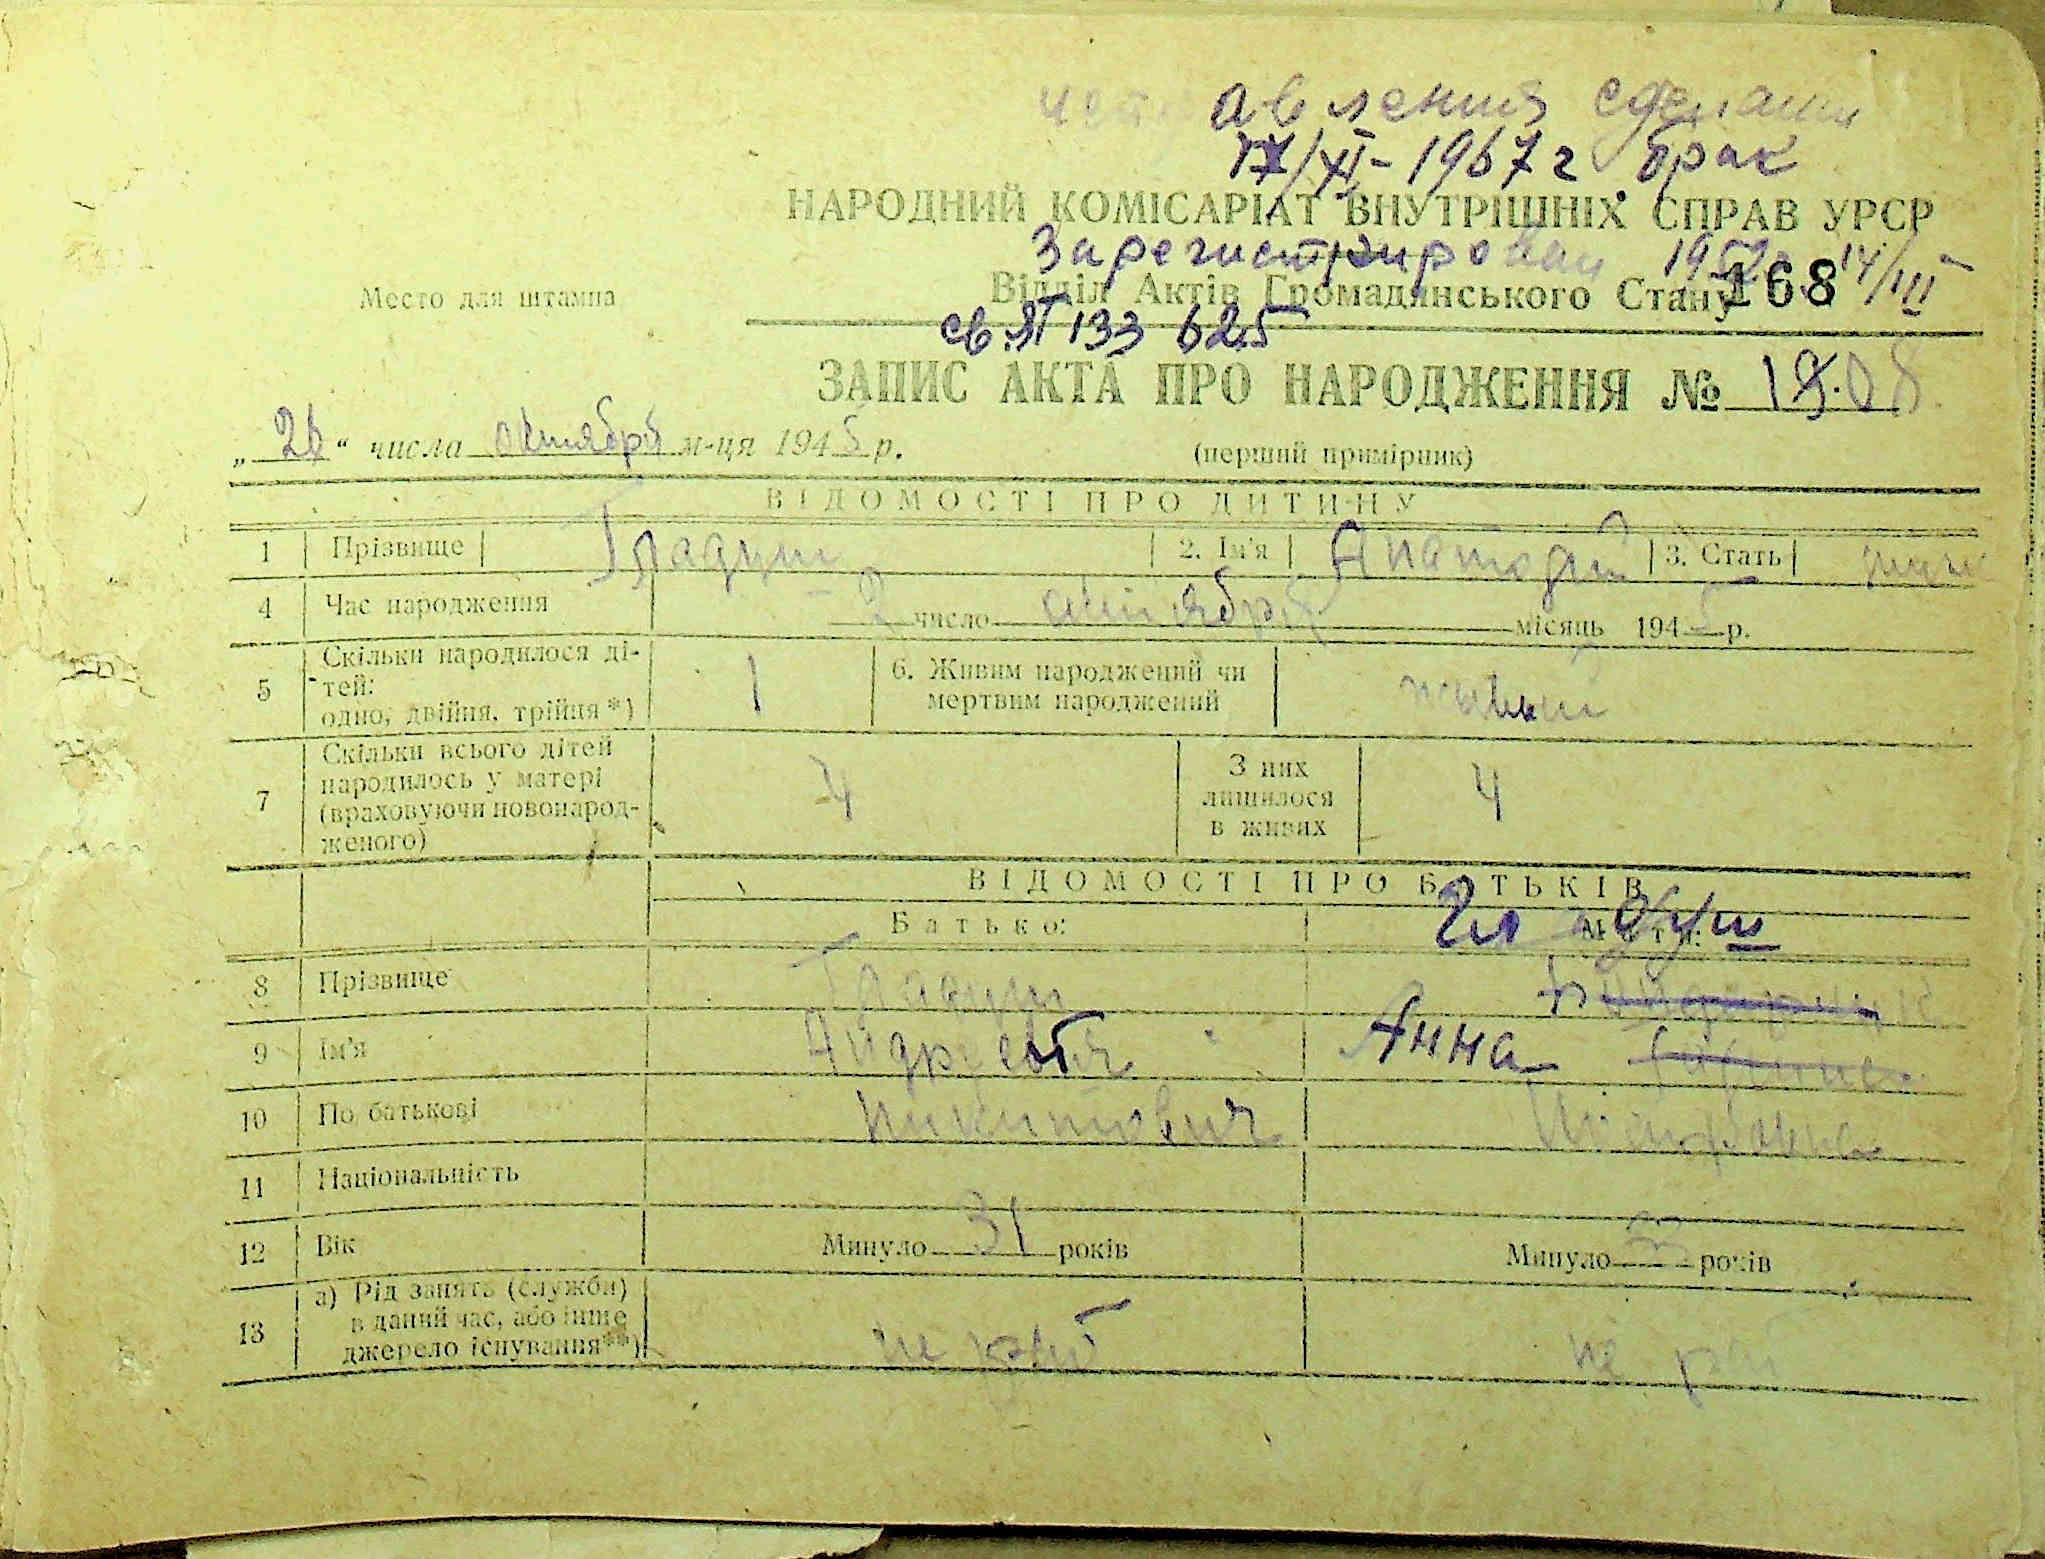 авления сделани
17/XI-1967 г брак
НАРОДНИЙ КОМІСАРІАТ ВНУТРІШНІХ СПРАВ УРСР
Зарегистрирован 14/III
Место для штампа
Відділ Актів Громадянського Стану 168
св. 133 625
ЗАПИС АКТА ПРО НАРОДЖЕННЯ №
„26“ числа октября м-ця 1945 р. (перший примірник)
ВІДОМОСТІ ПРО ДИТИНУ
1 Прізвище Гладуш 2. Ім'я Анатолий 3. Стать муж
4 Час народження 2 число октября місяць 1945 р.
5 Скільки народилося ді-
тей:
одно, двійня, трійня *) 1 6. Живим народжений чи
мертвим народжений живый
7 Скільки всього дітей
народилось у матері
(враховуючи новонарод-
женого) 4 З них
лишилося
в живих 4
ВІДОМОСТІ ПРО БАТЬКІВ
Батько: Мати:
Гладуш
8 Прізвище Гладуш
9 Ім'я Анна
10 По батькові Никитович
11 Національність
12 Вік Минуло 31 років Минуло років
13 а) Рід занять (служби)
в даний час, або інше
джерело існування**) не раб не раб